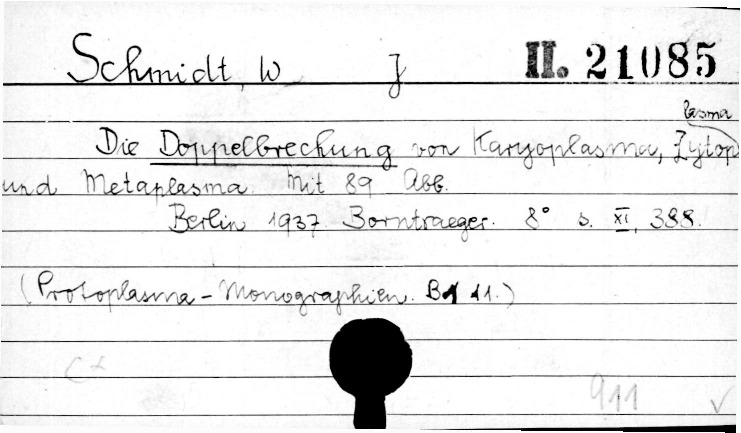 Schmidt, W J II. 21085
Die Doppelbrechung von Karyoplasma, Zytoplasma
und Metaplasma. Mit 89 Abb.
Berlin 1937. Borntraeger. 8° s. XI, 388.
(Protoplasma - Monographien. Bd 11.)
911